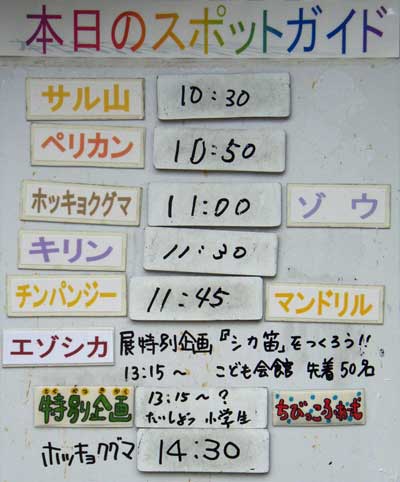 本日のスポットガイド
サル山 10:30
ペリカン 10:50
ホッキョクグマ 11:00 ゾウ
キリン 11:30
チンパンジー 11:45 マンドリル
エゾシカ 展特別企画『シカ笛』をつくろう!!
13:15～ こども会館 先着50名
とくべつきかく
特別企画 13:15～? ちびっこふれも
たいしょう 小学生
ホッキョクグマ 14:30